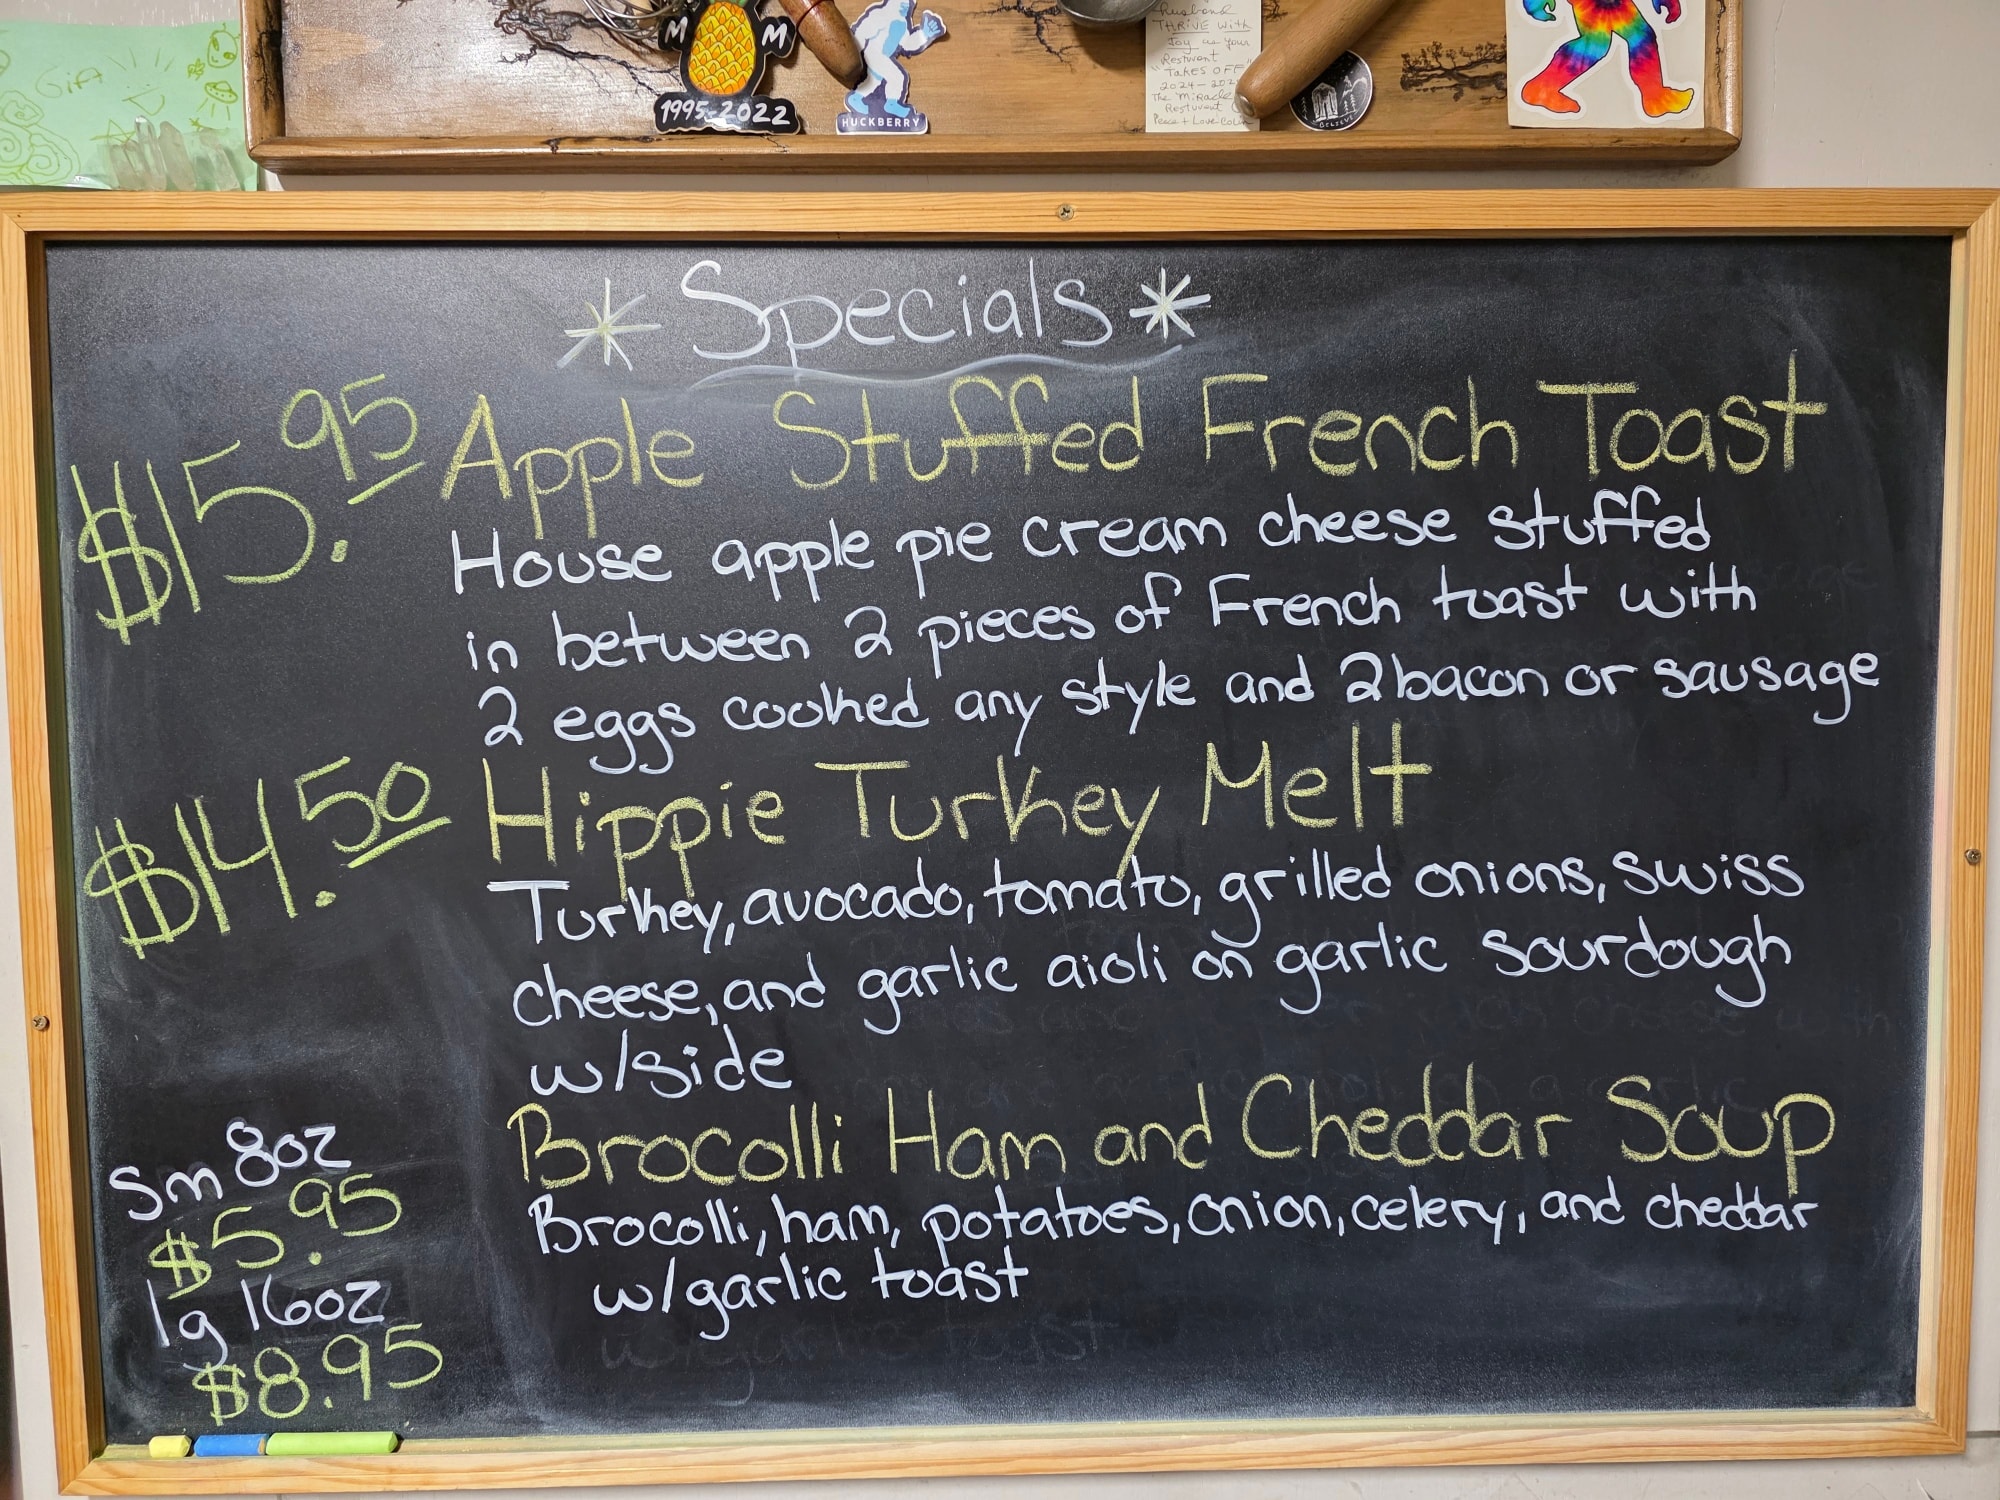 Gift
M M
1995-2022
HUCKBERRY
Husband
THRIVE with
Joy as your
Restuvant
"Takes OFF"
2024-202
The Miracle
Restuvent
Peace + Love
BELIEVE
* Specials *
$15.95 Apple Stuffed French Toast
House apple pie cream cheese stuffed
in between 2 pieces of French toast with
2 eggs cooked any style and 2 bacon or sausage
$14.50 Hippie Turkey Melt
Turkey, avocado, tomato, grilled onions, swiss
cheese, and garlic aioli on garlic sourdough
w/side
Brocolli Ham and Cheddar Soup
Sm 8oz
$5.95
lg 16oz
$8.95
Brocolli, ham, potatoes, onion, celery, and cheddar
w/garlic toast